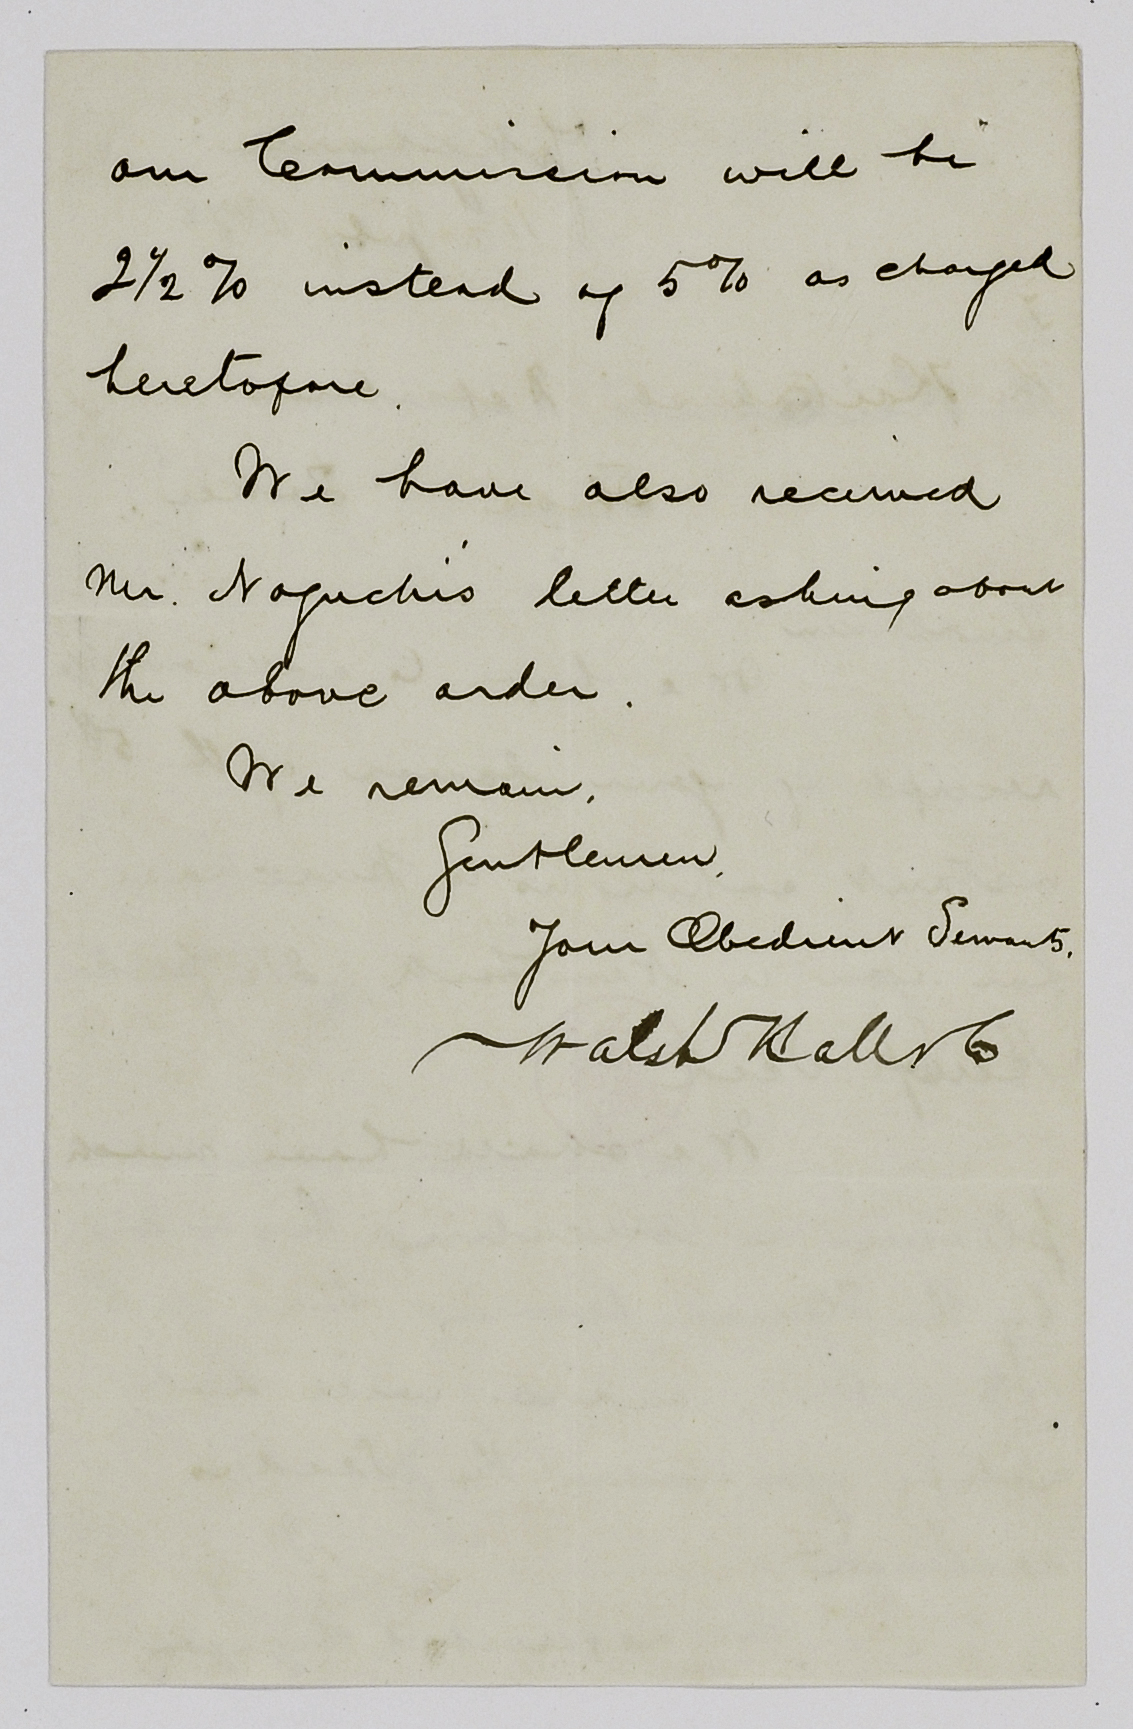 our Commission will be
2 1/2 % instead of 5% as charged
heretofore.
We have also received
Mr. Noguchi's letter asking about
the above order.
We remain,
Gentlemen,
Your Obedient Servants.
Walsh Hall & Co